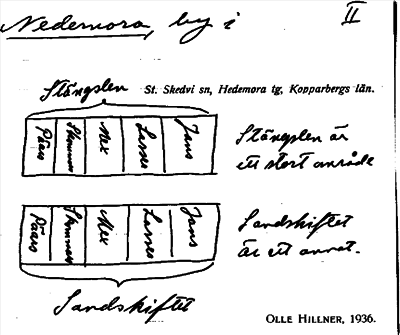 Nedemora, by i
II
Stängslen
St. Skedvi sn, Hedemora tg, Kopparbergs län.
Pärs Skinnars Mex Lasses Jans
Stängslen är
ett stort område
Pärs Skinnars Mex Lasses Jans
Sandskiftet
är ett annat.
Sandskiftet
OLLE HILLNER, 1936.